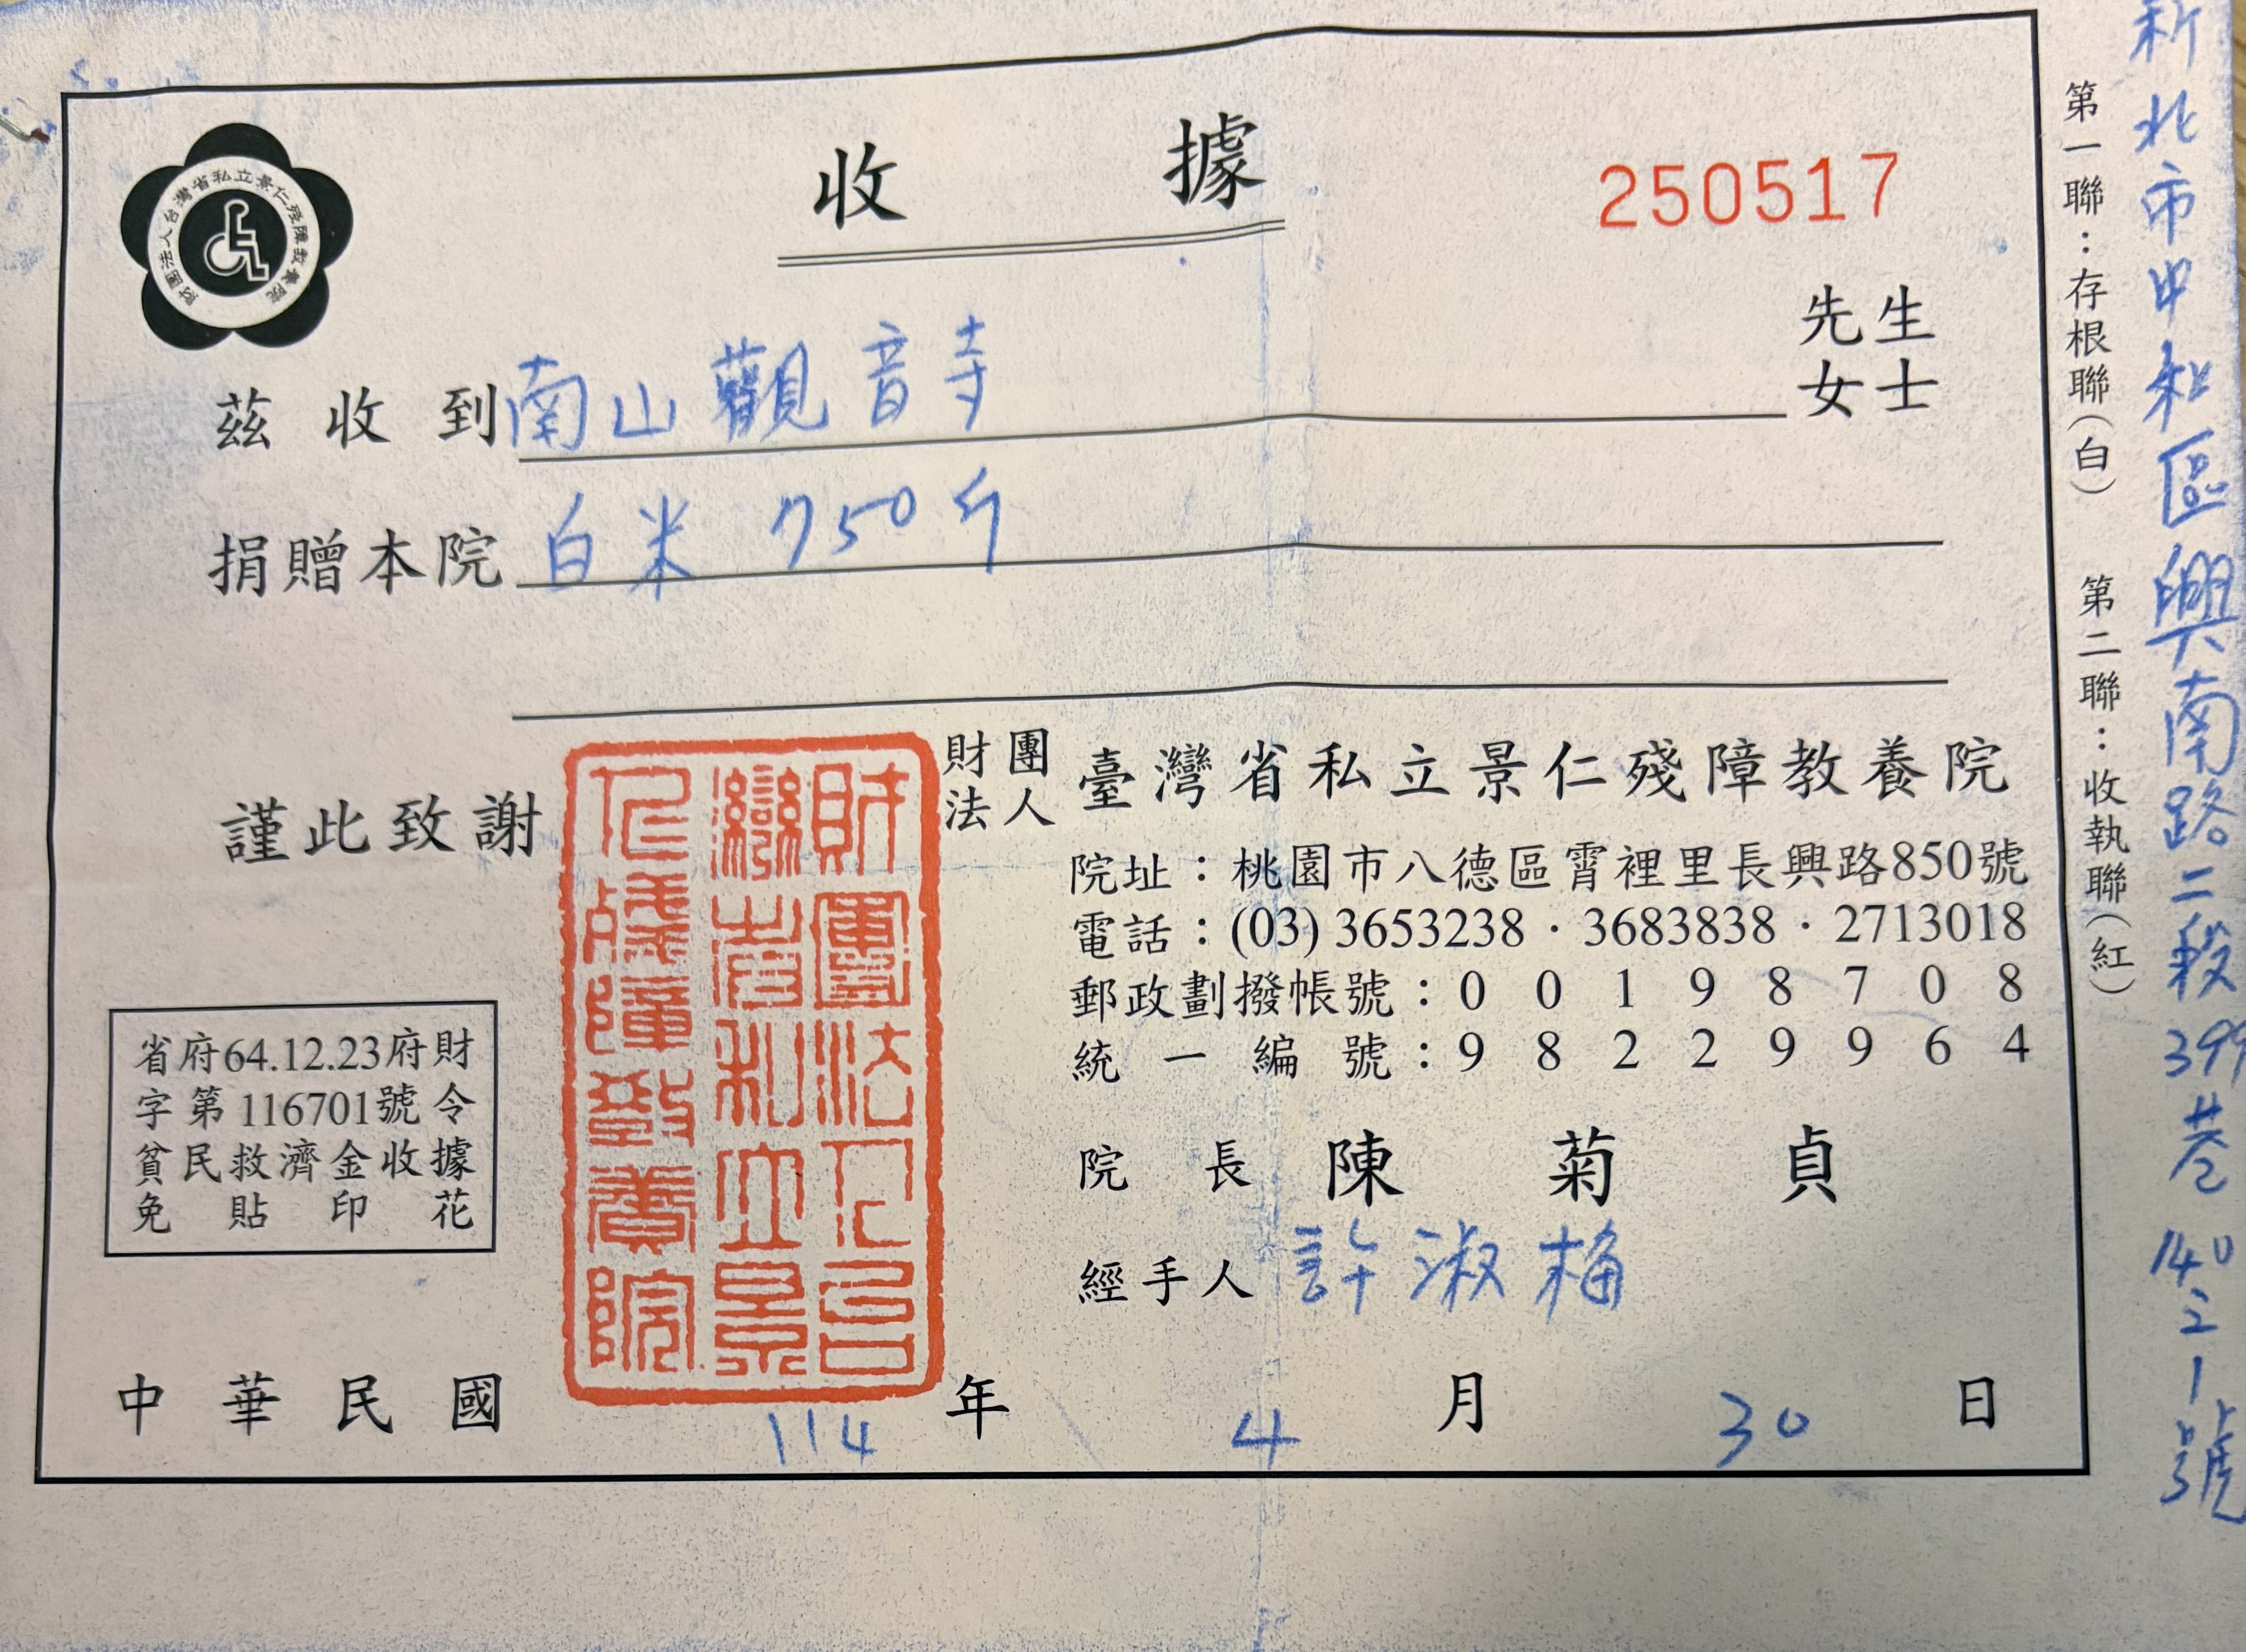 財團法人台灣省私立景仁殘障教養院
收據
250517
先生
女士
茲收到南山觀音寺
捐贈本院白米 750斤
謹此致謝
財團法人臺灣省私立景仁殘障教養院
院址：桃園市八德區霄裡里長興路850號
電話：(03) 3653238·3683838·2713018
郵政劃撥帳號：00198708
統一編號：98229964
院長 陳菊貞
經手人 許淑梅
省府64.12.23府財
字第116701號令
貧民救濟金收據
免貼印花
財團法人台
灣省私立景
仁殘障教養院
中華民國114年4月30日
第一聯：存根聯（白） 第二聯：收執聯（紅）
新北市中和區興南路二段399巷140之1號